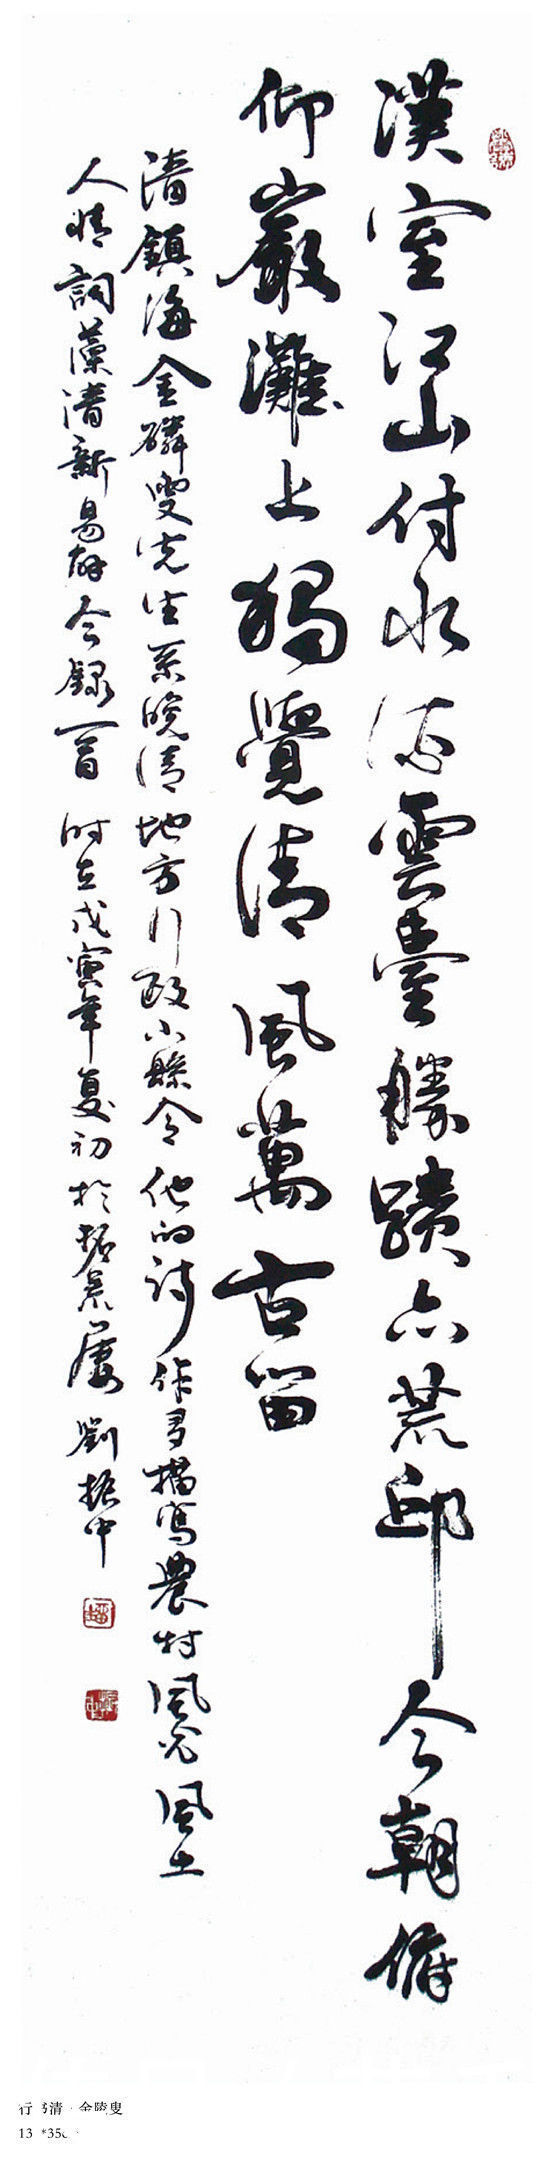 漢室江山付水流雲臺勝蹟亦荒邱今朝俯
仰嚴灘上獨覺清風萬古留
清鎮海金磷叟先生系晚清地方行政小縣令他的詩作多描寫農村風光風土
人情詞藻清新易解今録一首時在戊寅年夏初於振素屢劉振中
行书清·金陵叟